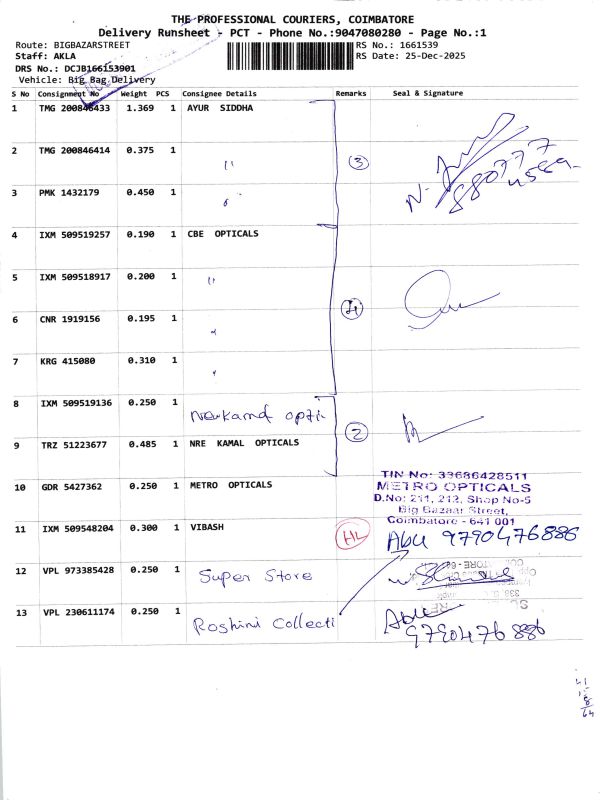 THE PROFESSIONAL COURIERS, COIMBATORE
Delivery Runsheet - PCT - Phone No.:9047080280 - Page No.:1
Route: BIGBAZARSTREET
RS No.: 1661539
Staff: AKLA
RS Date: 25-Dec-2025
DRS No.: DCJB166153901
Vehicle: Big Bag Delivery
S No Consignment No Weight PCS Consignee Details Remarks Seal & Signature
1 TMG 200846433 1.369 1 AYUR SIDDHA
2 TMG 200846414 0.375 1 〃 3
3 PMK 1432179 0.450 1 〃
4 IXM 509519257 0.190 1 CBE OPTICALS
5 IXM 509518917 0.200 1 〃 4
6 CNR 1919156 0.195 1 〃
7 KRG 415080 0.310 1 〃
8 IXM 509519136 0.250 1 2
9 TRZ 51223677 0.485 1 NRE KAMAL OPTICALS
10 GDR 5427362 0.250 1 METRO OPTICALS
TIN No: 33686428511
METRO OPTICALS
D.No: 211, 212, Shop No-5
Big Bazaar Street,
Coimbatore - 641 001
11 IXM 509548204 0.300 1 VIBASH HL Abu 9790476886
12 VPL 973385428 0.250 1 Super Store
13 VPL 230611174 0.250 1 Roshini Collecti Abu
9790476886